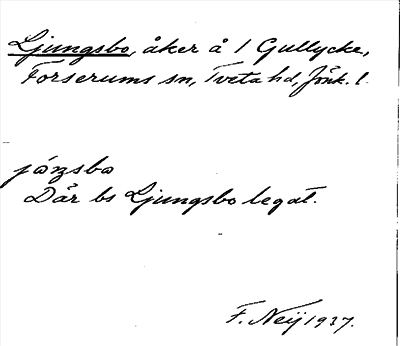 Ljungsbo, åker å 1 Gullycke,
Forserums sn, Tveta hd, Jönk. l.
jóŋsbo
Där bs Ljungsbo legat.
F. Neij 1937.